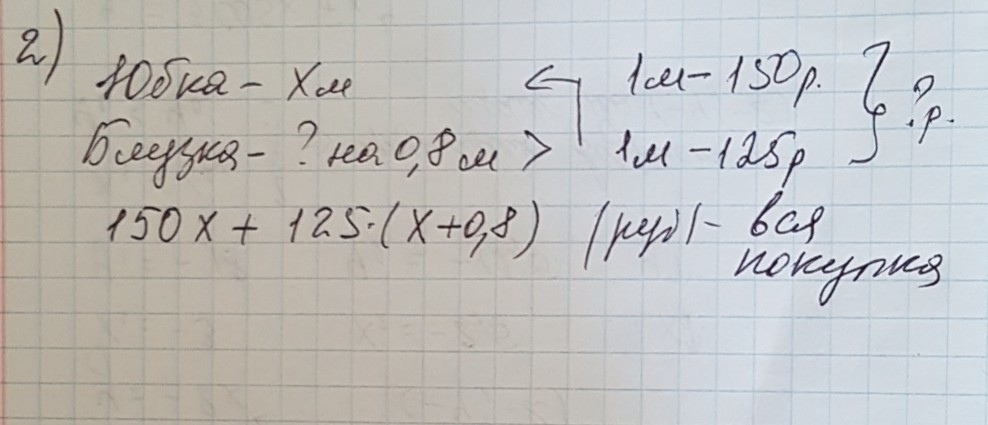 2)
Юбка - х м 1м - 150р.
Блузка - ? на 0,8 м > 1м - 125р } ? р.
150х + 125·(х+0,8) (руб) - вся
покупка